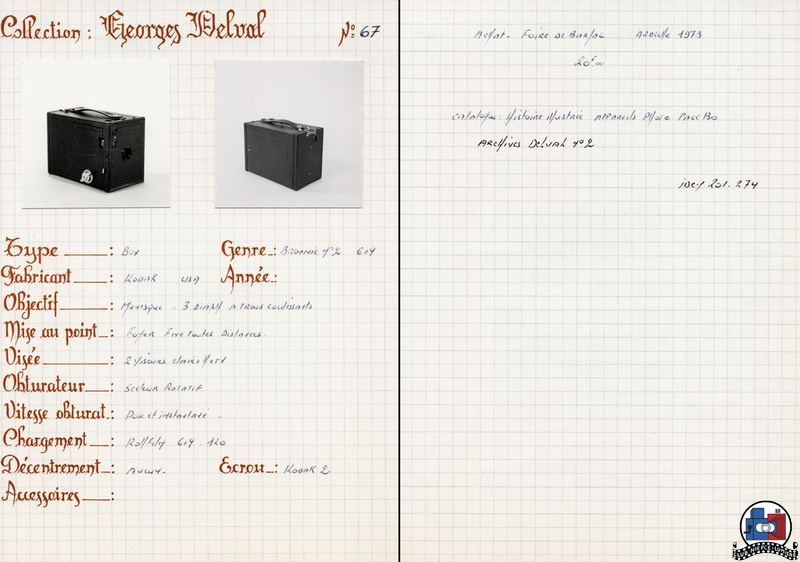 Collection : Georges Delval
N° 67
Type : Box
Genre : Brownie N°2 6x9
Fabricant : KODAK USA
Année :
Objectif : Ménisque - 3 Diaph A Trous coulissants
Mise au point : Foyer Fixe Toutes Distances.
Visée : 2 Viseurs clairs
Obturateur : Secteur Rotatif
Vitesse obturat. : Pose et instantané
Chargement : Rollfilm 6x9 - 120
Décentrement : Aucun.
Ecrou : KODAK 2
Accessoires :
Achat - Foire de 1973
20F,00
Catalogue : Histoire illustrée Appareils Photo Page 80
Archives Delval N° 2
201-274